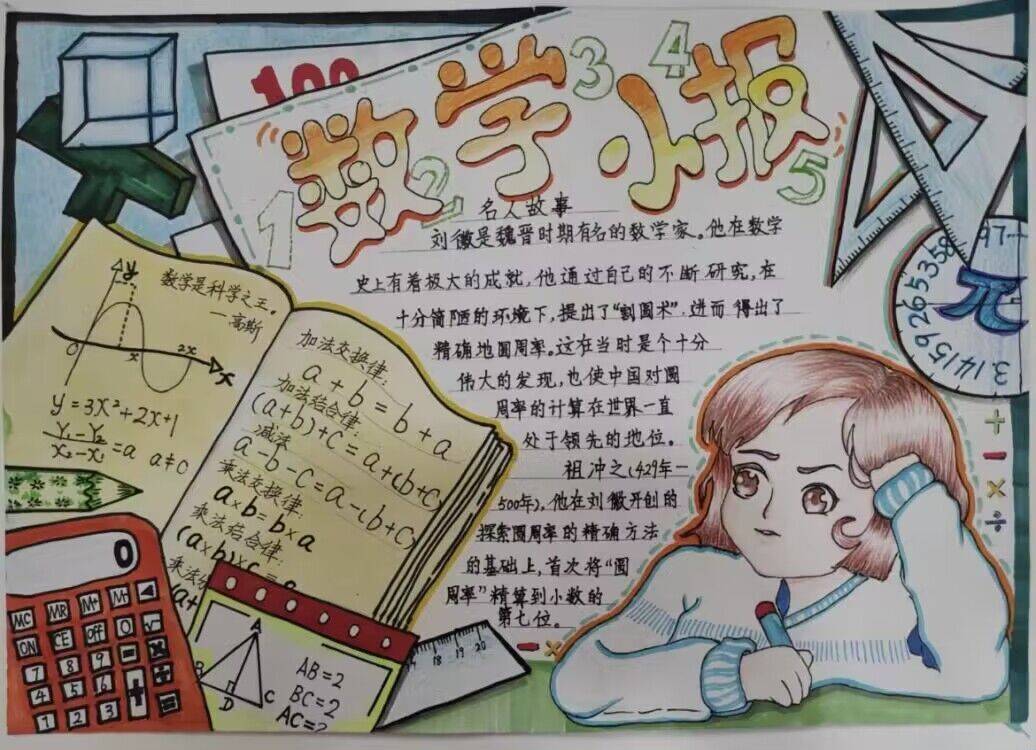 100
数学小报
1
2
3
4
5
名人故事
刘徽是魏晋时期有名的数学家。他在数学
史上有着极大的成就,他通过自己的不断研究,在
十分简陋的环境下,提出了“割圆术”.进而得出了
精确地圆周率。这在当时是个十分
伟大的发现,也使中国对圆
周率的计算在世界一直
处于领先的地位。
祖冲之(429年一
500年),他在刘徽开创的
探索圆周率的精确方法
的基础上,首次将“圆
周率”精算到小数的
第七位。
y
数学是科学之王。
—高斯
O
x
2x
x
y=3X²+2x+1
Y₁-Y₂
X₂-X₁
=a a≠0
加法交换律:
a+b=b+a
加法结合律:
(a+b)+C=a+(b+C)
减法:
a-b-c=a-(b+C)
乘法交换律:
a×b=b×a
乘法结合律:
(a×b)×c=a
乘法分
(a+
0
MC MR M+ M+
ON CE OFF 0 √
7 8 9 - ×
4 5 6 + ÷
1 2 3 =
A
B
D
C
AB=2
BC=2
AC=?
18 19 20
π
3.14159265358
97一
+
-
×
÷
- ×